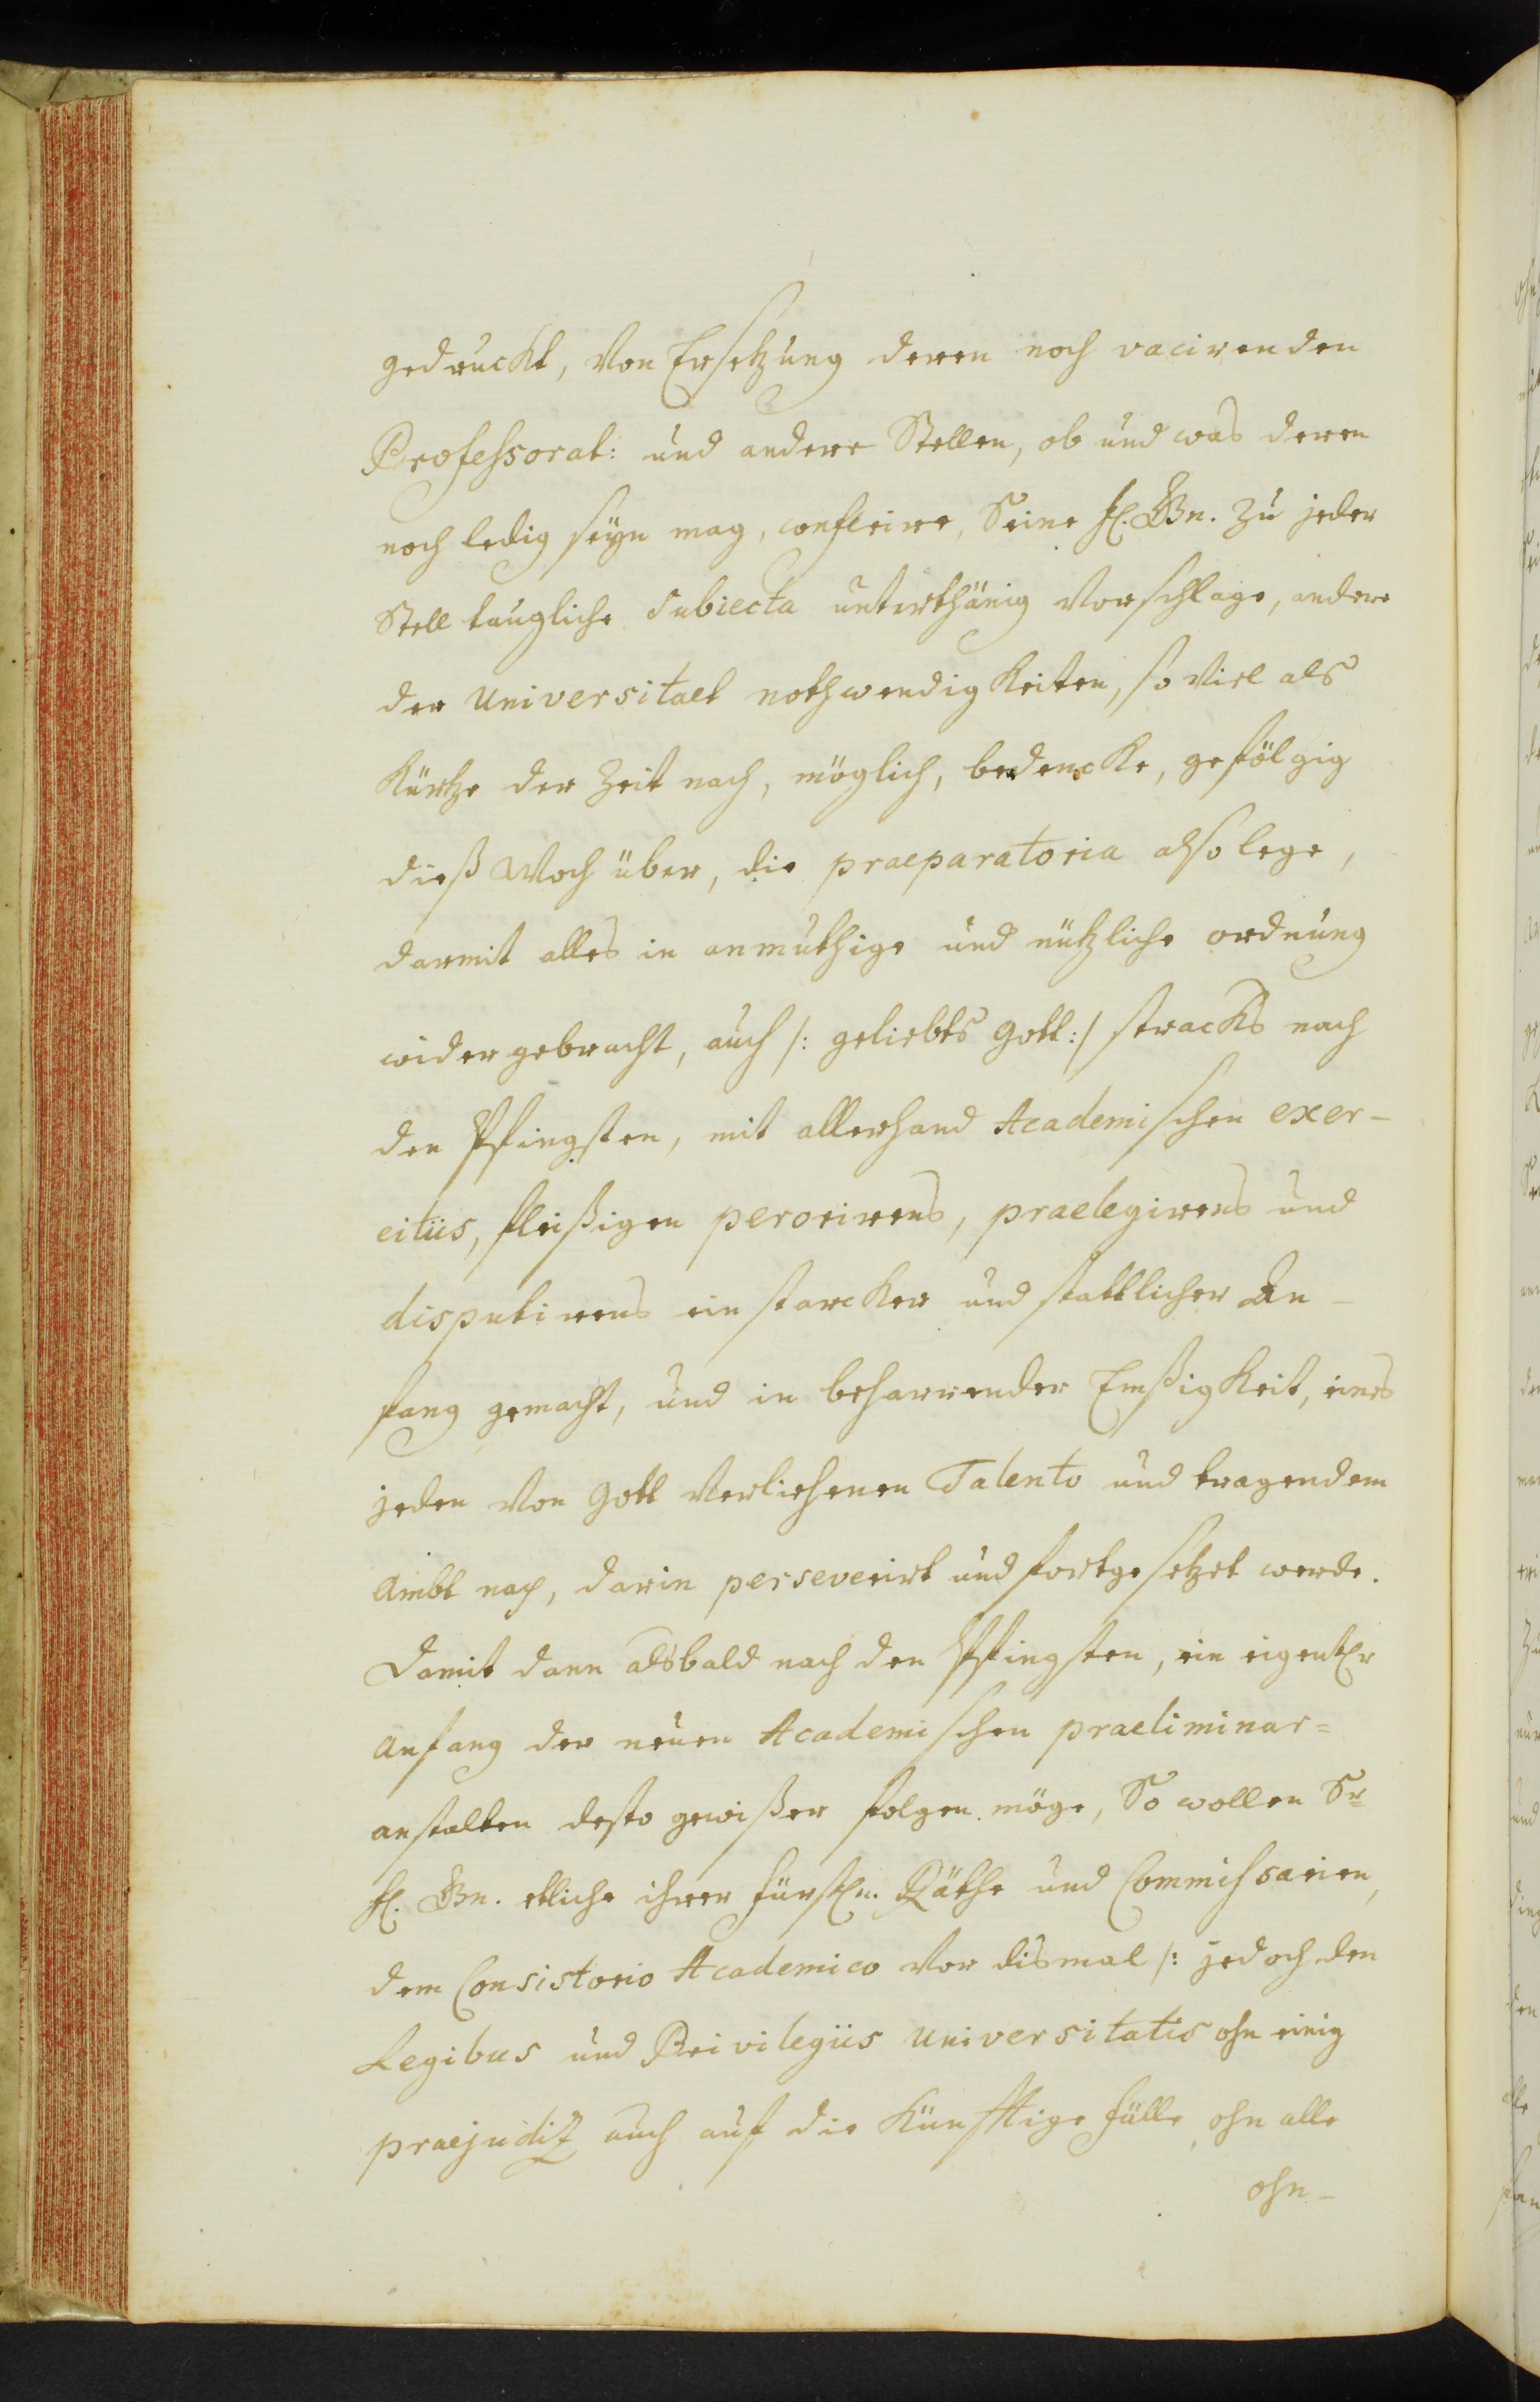 gedruckt, Von Ersetzung deren noch vacirenden
Professorat: und andere Stellen, ob und was deren
noch ledig seyn mag, conferire, Seine fl. Gn. zu jeder
Stell taugliche Subiecta unterthänig Vorschlage, andere
der Universitaet nothwendigkeiten, so Viel als
Kürtze der Zeit nach, möglich, bedencke, gefölgig
dieß Woch über, die praeparatoria also lege,
darmit alles in anmuthige und nützliche ordnung
wider gebracht, auch /: geliebts Gott :/ stracks nach
den Pfingsten, mit allerhand Academischen exer-
citiis, fleißigen perorirens, praelegirens und
disputirens ein starcker und stattlicher An-
fang gemacht, und in beharrender Emßigkeit, eines
jeden Von Gott Verliehenen Talento und tragendem
Ambt nach, darin perseverirt und fortgesetzet werde.
Damit dann alsbald nach den Pfingsten, ein eigentlr
Anfang der neuen Academischen praeliminar=
anstalten desto gewißer folgen möge, So wollen Sr
fl. Gn. etliche ihrer fürstln. Räthe und Commissarien,
dem Consistorio Academico Vor dismal /: jedoch den
Legibus und Privilegiis Universitatis ohn einig
praejudiz auch auf die Künfftige fälle, ohn alle
ohn-